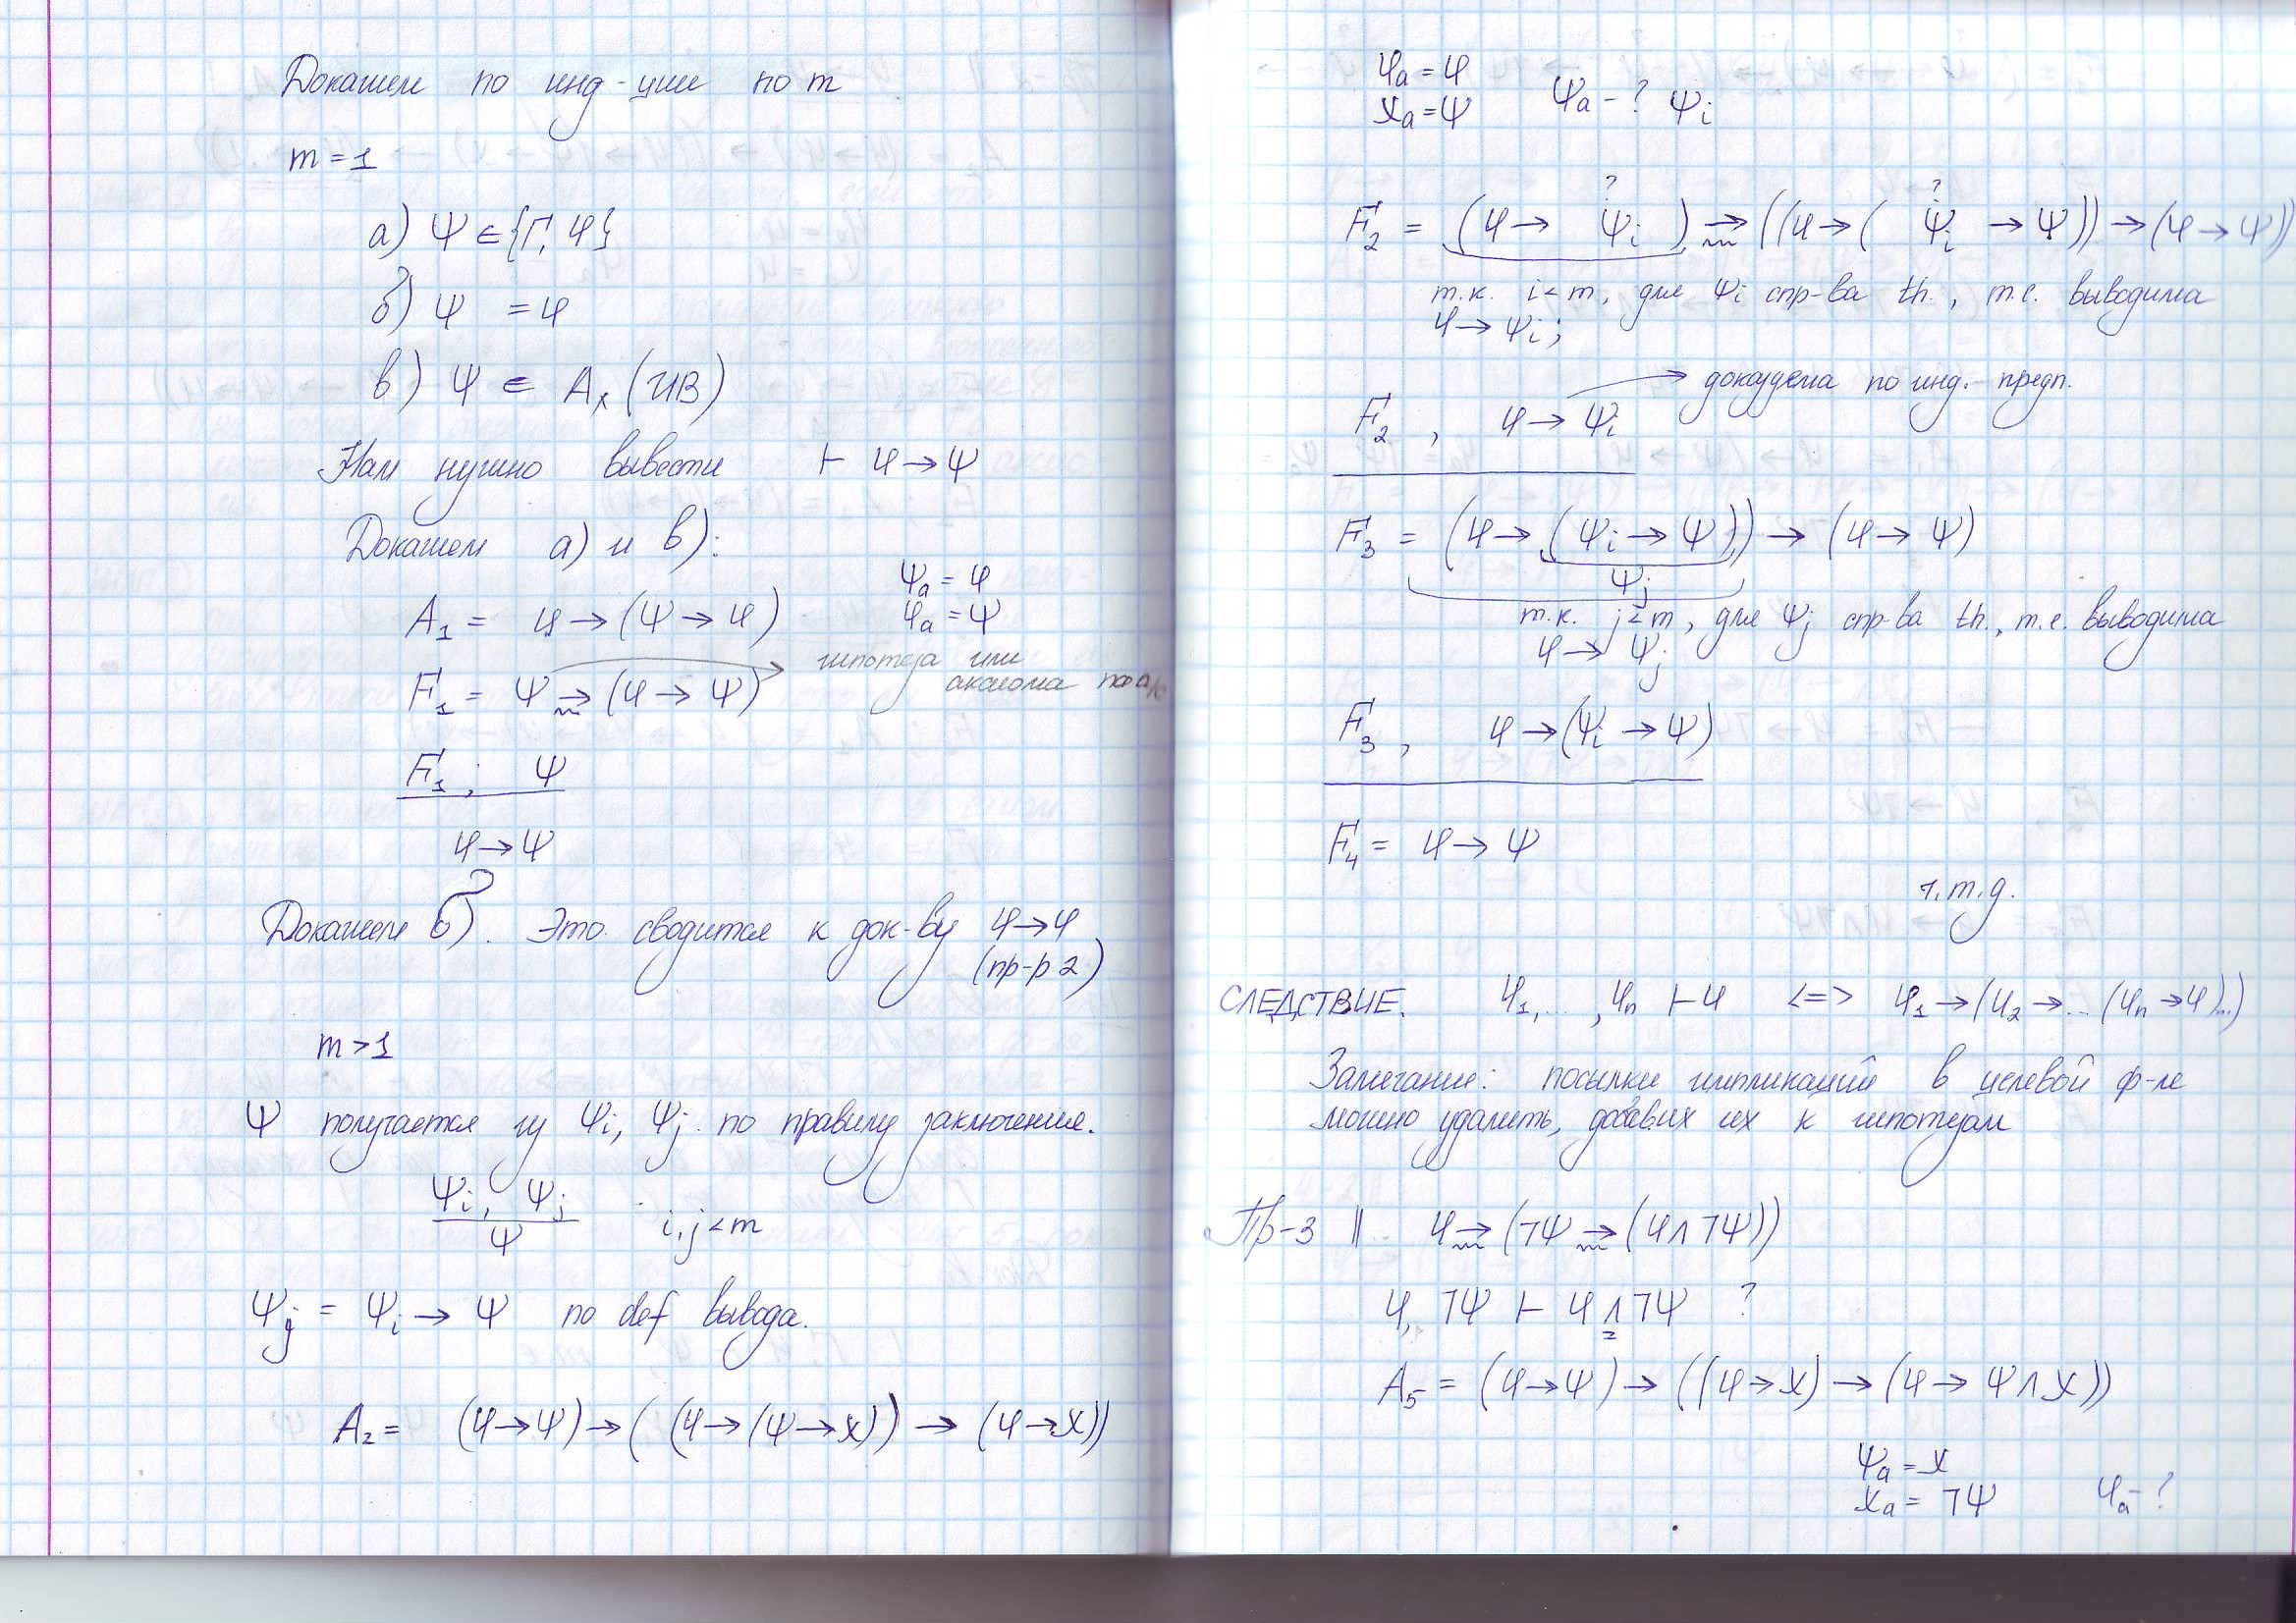 Докажем по инд-ции по m
m = 1
а) Ψ ∈ {Γ, φ}
б) Ψ = φ
в) Ψ ∈ Aₓ (ИВ)
Нам нужно вывести ⊢ φ → Ψ
Докажем а) и в):
Ψₐ = φ
A₁ = φ → (Ψ → φ) φₐ = Ψ
F₁ = Ψ → (φ → Ψ) гипотеза или
аксиома по а/в
F₁ ; Ψ
φ → Ψ
Докажем б). Это сводится к док-ву φ → φ
(пр-р 2)
m > 1
Ψ получается из Ψᵢ, Ψⱼ по правилу заключения.
Ψᵢ, Ψⱼ
Ψ i, j < m
Ψⱼ = Ψᵢ → Ψ по def вывода.
A₂ = (φ → Ψ) → ((φ → (Ψ → χ)) → (φ → χ))
φₐ = φ
χₐ = Ψ Ψₐ - ? Ψᵢ
? ?
F₂ = (φ → Ψᵢ) → ((φ → (Ψᵢ → Ψ)) → (φ → Ψ))
т.к. i < m, для Ψᵢ спр-ва th., т.е. выводима
φ → Ψᵢ;
доказуема по инд. предп.
F₂ , φ → Ψᵢ
F₃ = (φ → (Ψᵢ → Ψ)) → (φ → Ψ)
Ψⱼ
т.к. j < m, для Ψⱼ спр-ва th., т.е. выводима
φ → Ψⱼ
F₃ , φ → (Ψᵢ → Ψ)
F₄ = φ → Ψ
ч.т.д.
СЛЕДСТВИЕ. φ₁, ... , φₙ ⊢ φ <=> φ₁ → (φ₂ → ... (φₙ → φ)...)
Замечание: посылки импликаций в целевой ф-ле
можно удалить, добавих их к гипотезам
Пр-3 || φ → (¬Ψ → (φ ∧ ¬Ψ))
φ, ¬Ψ ⊢ φ ∧ ¬Ψ ?
A₅ = (φ → Ψ) → ((φ → χ) → (φ → Ψ ∧ χ))
Ψₐ = χ
χₐ = ¬Ψ φₐ - ?